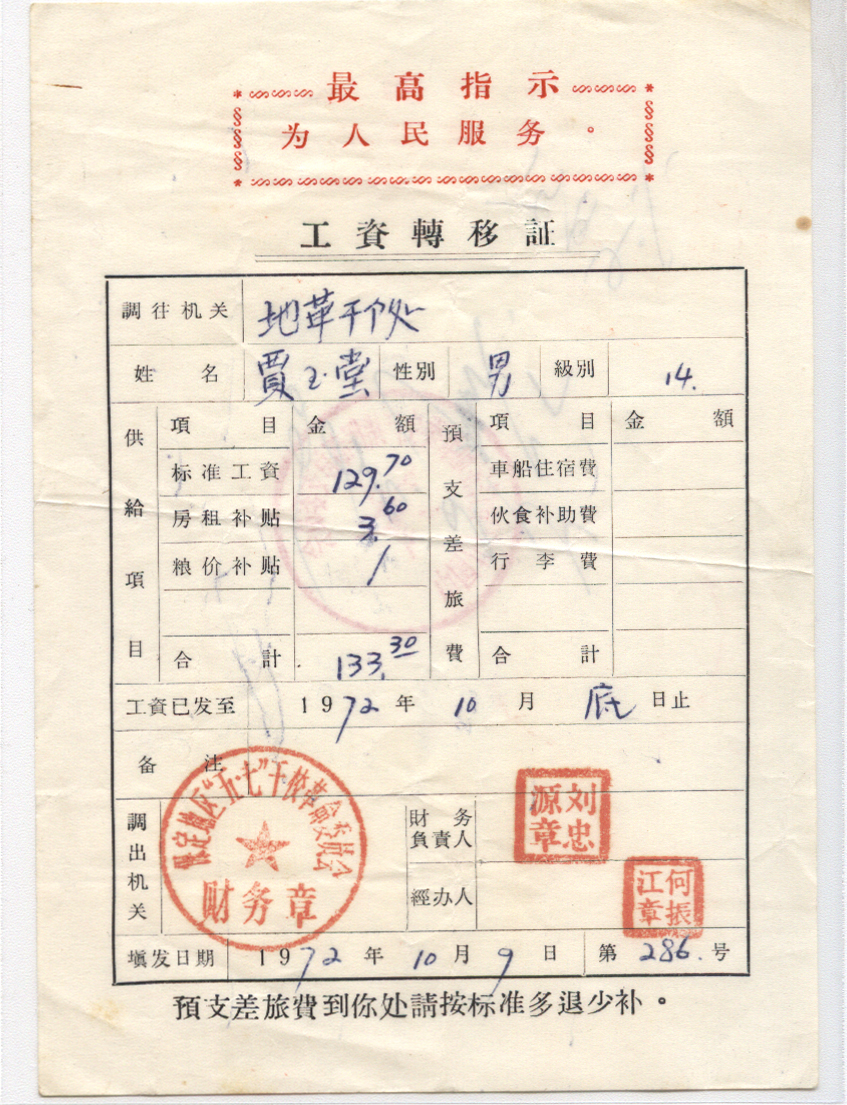 最高指示
为人民服务。
工資轉移証
調往机关 地革干伙处
姓名 賈玉堂 性別 男 級別 14.
供給項目 項目 金額 預支差旅費 項目 金額
标准工資 129.70 車船住宿費
房租补贴 3.60 伙食补助費
粮价补贴 / 行李費
合計 133.30 合計
工資已发至 1972年10月底日止
备注
調出机关 財务負責人 刘忠源章
經办人 何振江章
保定地区“五·七”干校革命委员会
财务章
塡发日期 1972年10月9日 第286.号
預支差旅費到你处請按标准多退少补。